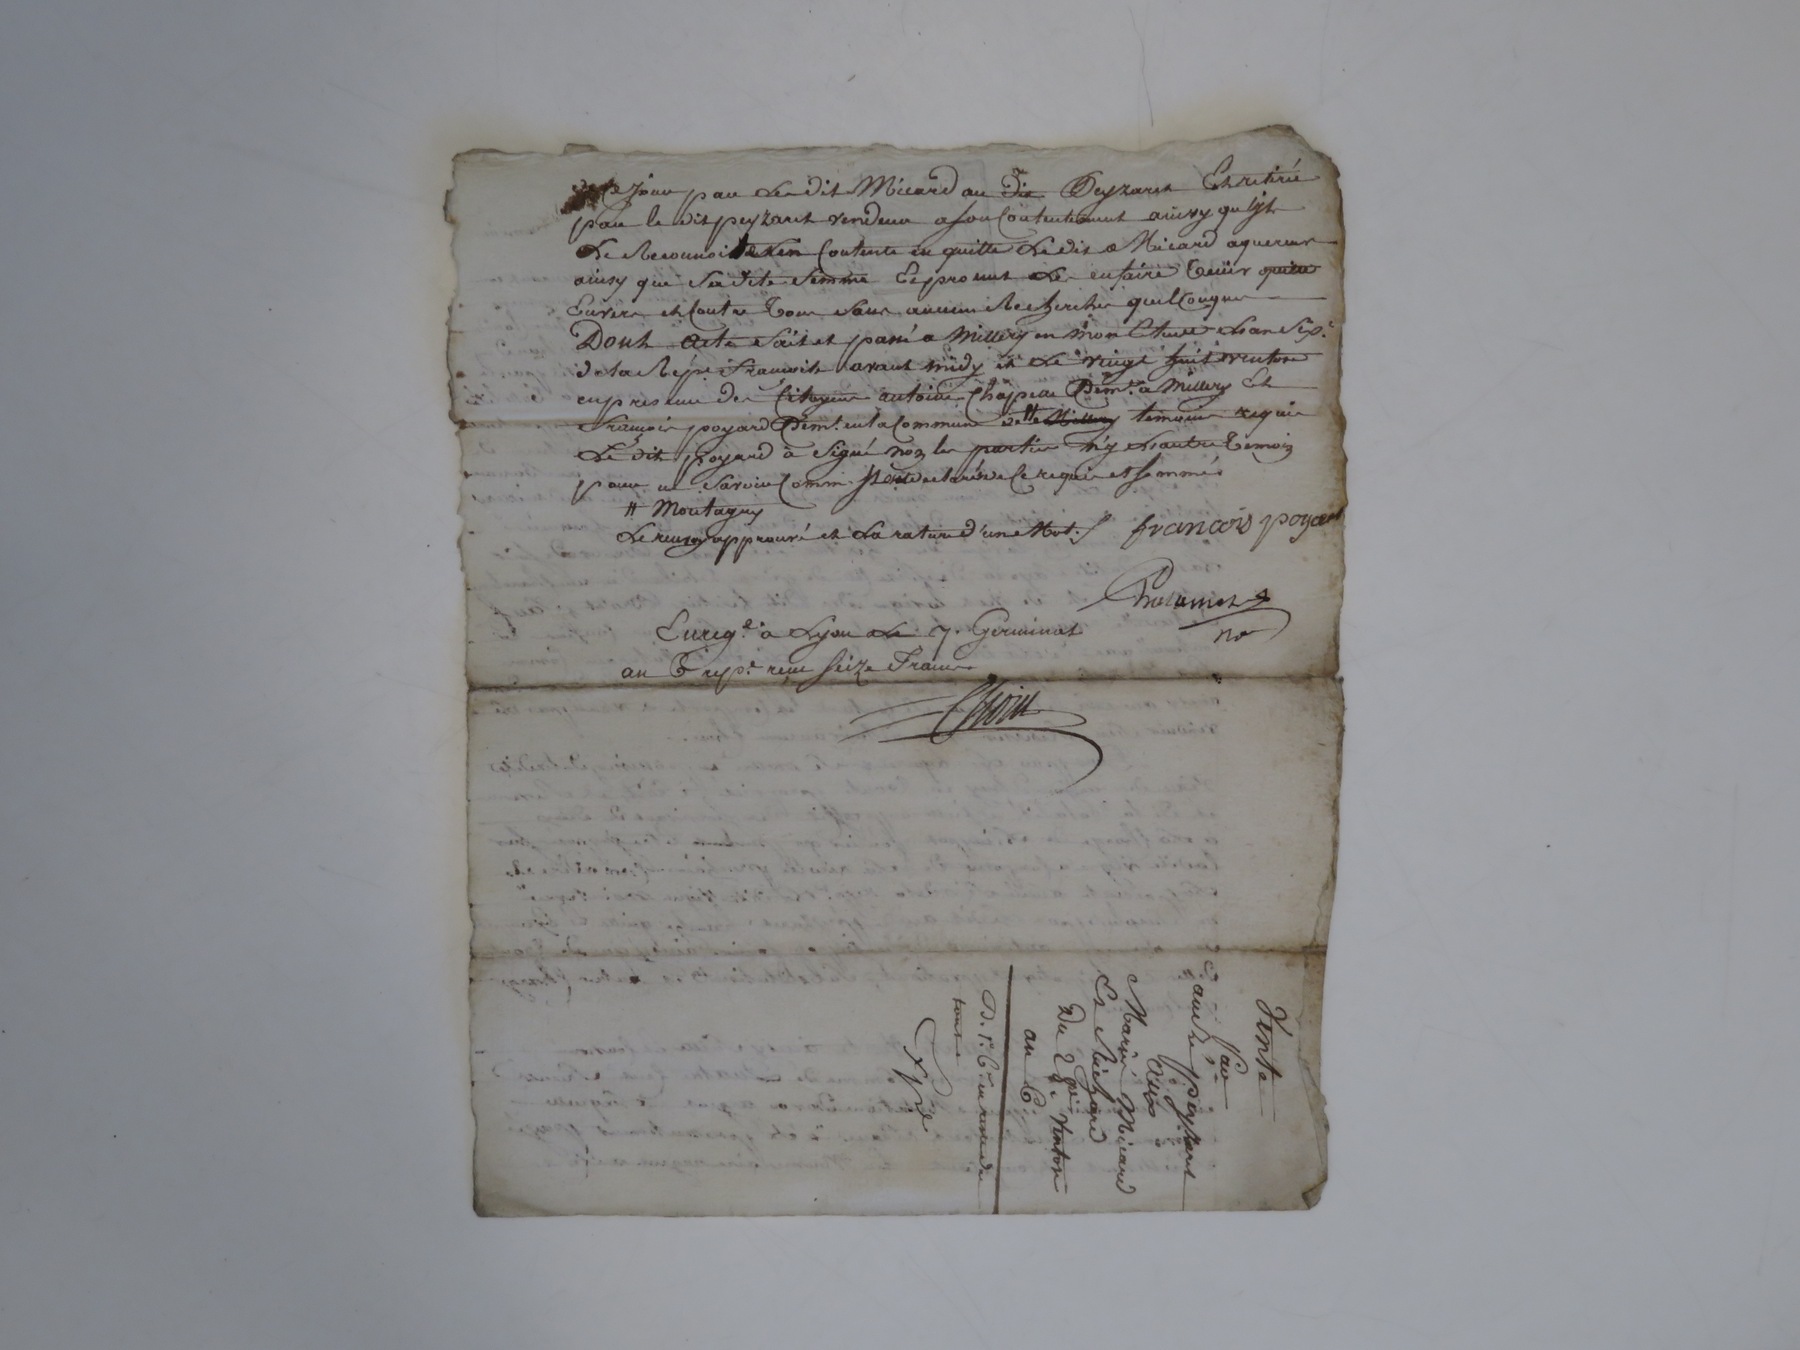 Jour par Le dit Micard au Dit Peyzaret Et retiré
par le dit peyzaret vendeur a son Contentement ainsy qu'il
Le Reconnoit Contente en quitte Le dit Micard aquereur
ainsy que Sa dite femme Et promet de en faire tenir quitte
Envers et Contre Tous Sans aucune Recherche quelConque
Dont Acte Fait et passé a Millery en mon Etude L'an Six.e
de la Rép.e Francoise avant midy et Le vingt huit ventose
en presence de Citoyens antoine Chapeau Dem.t a Millery Et
François poyard Dem.t en la Commune de Millery temoins requis
Le dit poyard à Signé non les parties n'y L'autre Temoin
pour ne Savoir Comm' Ils ont declaré de Ce requis et Sommés
# Montagny
Le renvoy approuvé et La rature d'une Mot./. francois poyard
no.re
Enreg.é à Lyon Le 7. Germinal
au 6 rep.e reçu Seize Francs
Choin
Vente
Par
Peyzaret
Aux
Mariés Micard
Et Richard
Du 28. Ventose
an 6.
D. 1.er
Exp.é